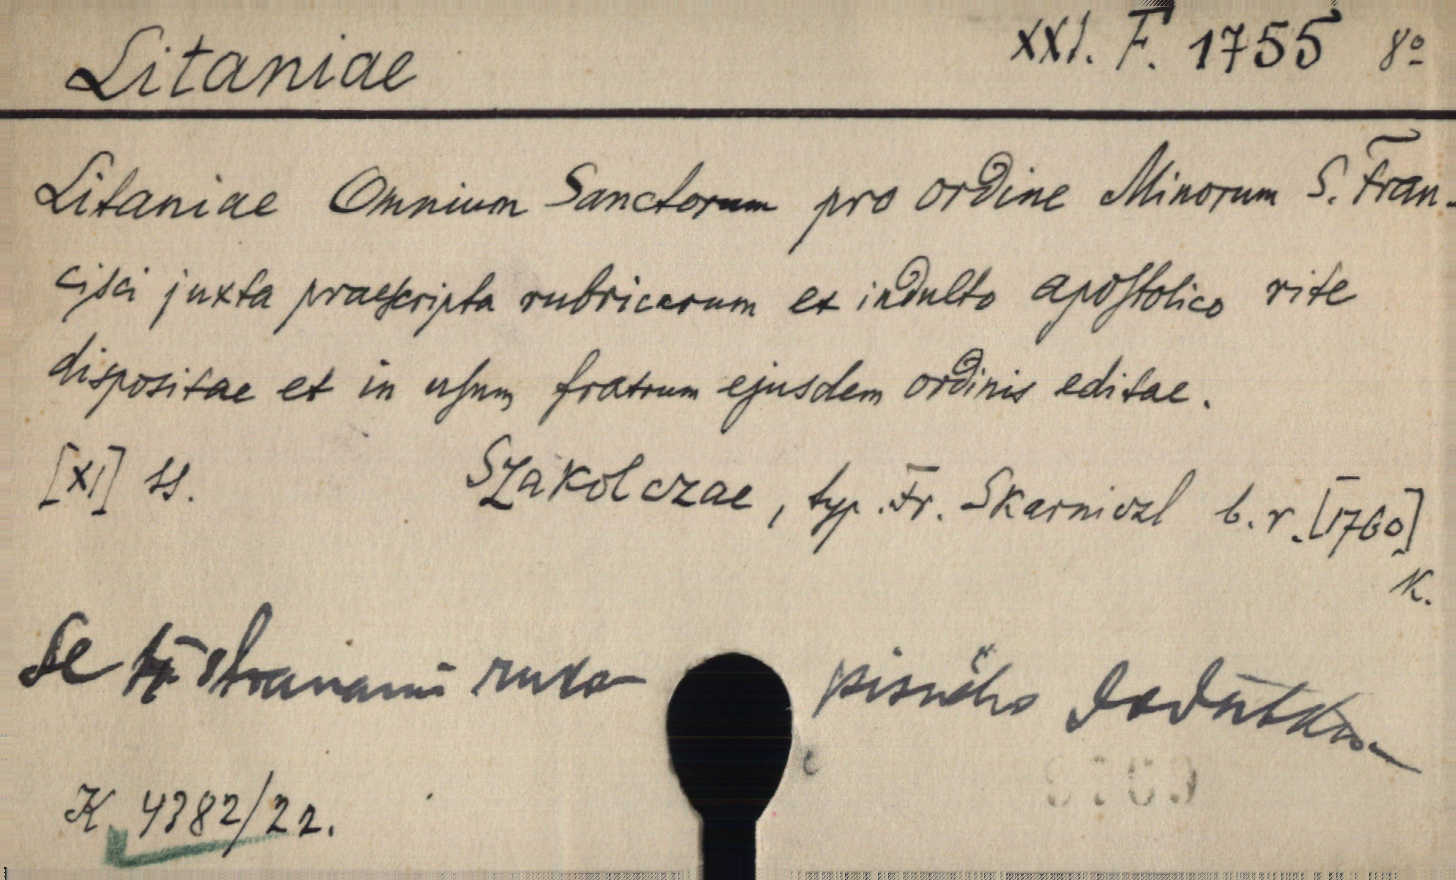 Litaniae
XXI. F. 1755 8º
Litaniae Omnium Sanctorum pro ordine Minorum S. Fran-
cisci juxta praescripta rubricarum et indulto apostolico rite
dispositae et in usum fratrum ejusdem ordinis editae.
[XI] ss. Szakolczae, typ. Fr. Skarniczl b. r. [1760]
K.
Se stranami ruko- pisného dodatku
K 4382/22.